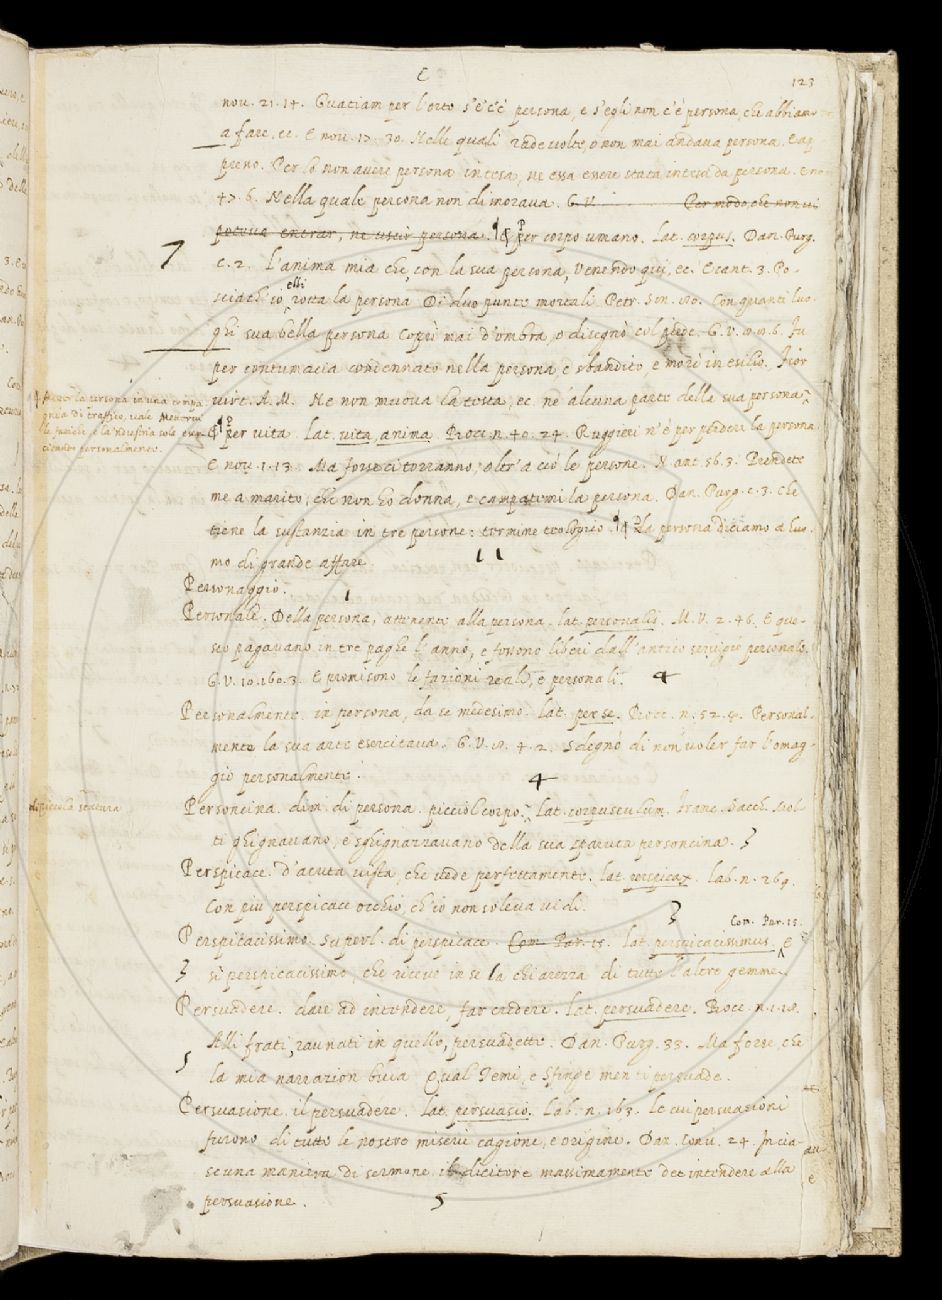 C
123
nov. 21. 14. Guatiam per l'orto s'e' c'è persona, e s'egli non c'è persona, che abbiamo
a fare, ec. E nov. 17. 30. Nelle quali rade volte, o non mai andava persona. E ap
preno. Per lo non avere persona intesa, ne essa essere stata intesa da persona. E no
47. 6. Nella quale persona non dimorava. G. V. Per modo, che non vi
poteva entrar, ne uscir persona. ¶ per corpo umano. Lat. corpus. Dan. Purg.
7
c. 2. L'anima mia che, con la sua persona, Venendo qui, ec. E cant. 3. Po-
scia ch'io elli rotta la persona Di duo punte mortali. Petr. Son. Con quanti luo-
ghi sua bella persona Coprì mai d'ombra, o disegnò col piede. G. V. 10. 6. Fu
per contumacia condennato nella persona e sbandito, e morì in esilio. Fior
virt. A. M. Ne non muova la testa, ec. nè alcuna parte della sua persona.
Metter la persona in una compa
gnia di traffico, vale Mettervi
le fatiche e la 'ndustria sola eser
citando personalmente.
¶ per vita. Lat. vita, anima. Bocc. n. 40. 24. Ruggieri n'è per perdere la persona
E nov. 1. 13. Ma forse ci torranno, oltr'a ciò le persone. N. ant. 56. 3. Prendete
me a marito, che non ho donna, e campatemi la persona. Dan. Purg. c. 3. Che
tiene la sustanzia in tre persone: termine teologico. ¶ La persona diciamo a huo-
mo di grande affare.
11
Personaggio.
1
Personale. Della persona, attenente alla persona. lat. personalis. M. V. 2. 46. E que-
sto pagavano in tre paghe l'anno, e furono liberi dall'antico servigio personale.
G. V. 10. 160. 3. E promisono le fazioni reali, e personali.
4
Personalmente. in persona, da se medesimo. lat. per se. Bocc. n. 52. Personal-
mente la sua arte esercitava. G. V. 4. 2. Sdegnò di non voler far l'omag-
gio personalmente.
4
di piccola statura
Personcina. dim. di persona. picciol corpo. Lat. corpusculum. Franc. Sacch. Mol
ti ghignavano, e sghignazzavano della sua sparuta personcina.
3
Perspicace. d'acuta vista, che vede perfettamente. lat. perspicax. Lab. n. 269.
Con più perspicace occhio, ch'io non soleva vidi.
3
Com. Par. 15.
Perspicacissimo. Superl. di perspicace. Com. Par. 15. lat. perspicacissimus. È
3
sì perspicacissimo, che riceve in se la chiarezza di tutte l'altre gemme.
Persuadere. dare ad intendere, far credere. Lat. persuadere. Bocc. n. 1.
Alli frati, raunati in quello, persuadette. Dan. Purg. 33. Ma forse, che
5
la mia narrazion buia Qual Temi, e Sfinge men ti persuade.
Persuasione. il persuadere. lat. persuasio. Lab. n. 163. Le cui persuasioni
furono di tutte le nostre miserie cagione, e origine. Dan. Conv. 24. In cia-
scuna maniera di sermone il dicitore massimamente dee intendere alla
persuasione.
5